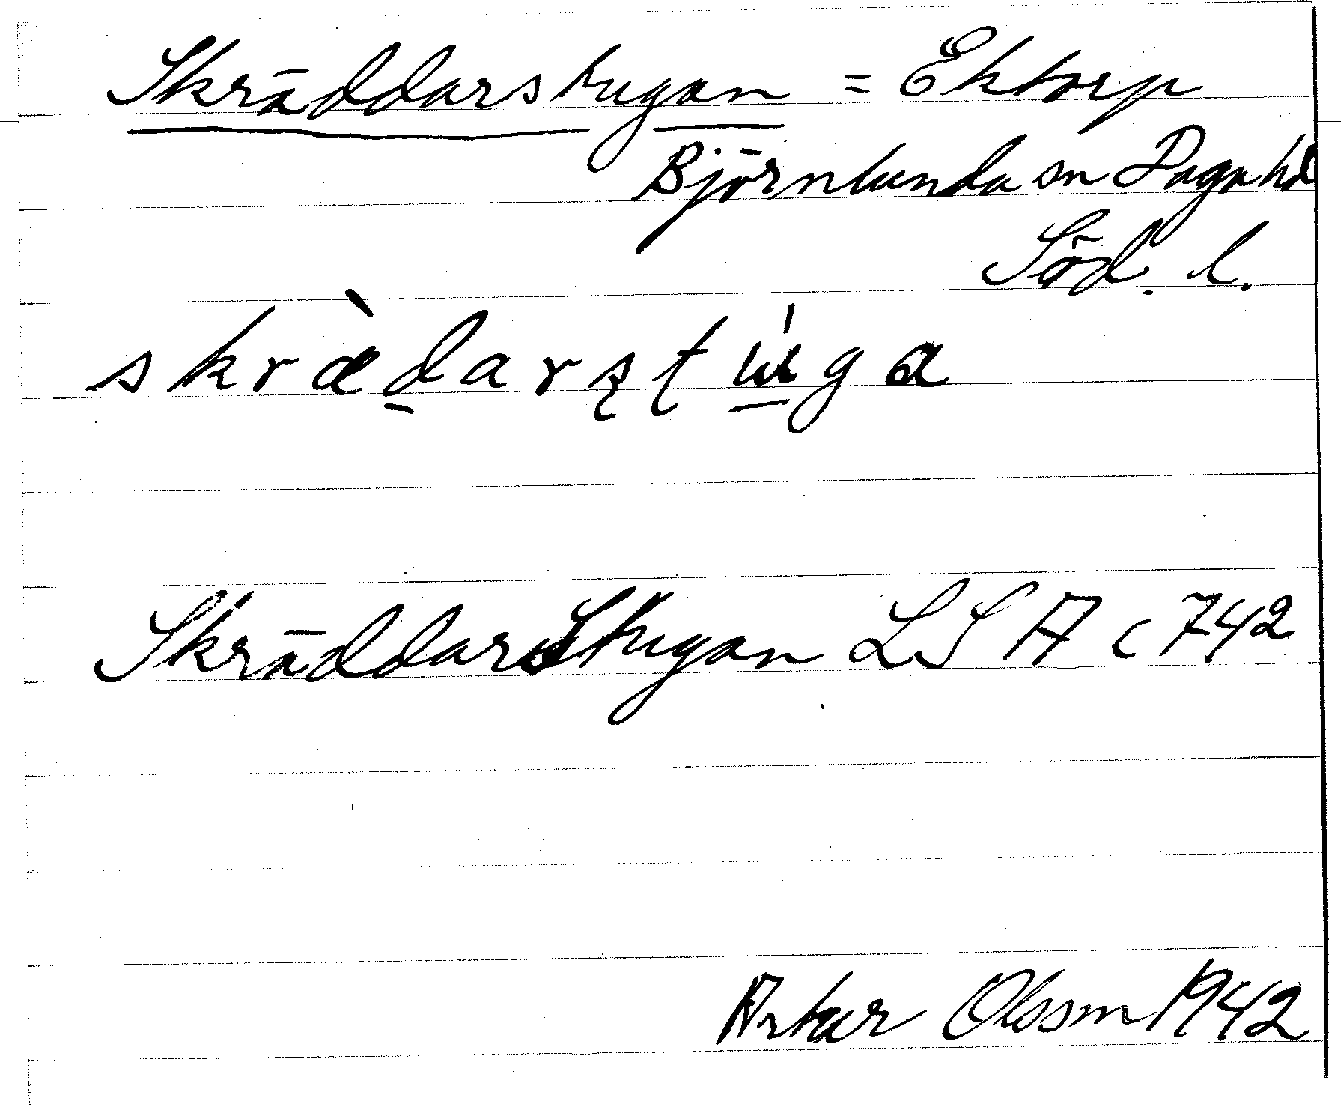 Skräddarstugan = Ektorp
Björnlunda sn Daga hd
Söd. l.
skræ̀d̲arʂʈú̲ga
Skräddarstugan LSA c 742
Artur Olsson 1942